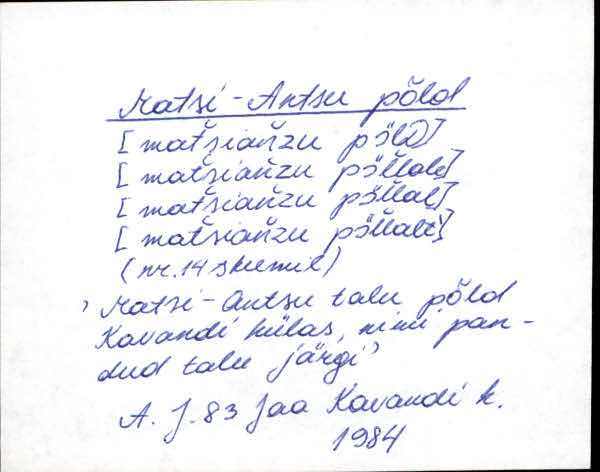 Matsi-Antsu põld
[matšiańzu pöĺD]
[matšiańzu pöĺĺale]
[matšiańzu pöĺĺal]
[matšiańzu pöĺĺalt]
(nr. 14 skeemil)
' Matsi-Antsu talu põld
Kavandi külas, nimi pan-
dud talu järgi'
A. J. 83 Jaa Kavandi k.
1984